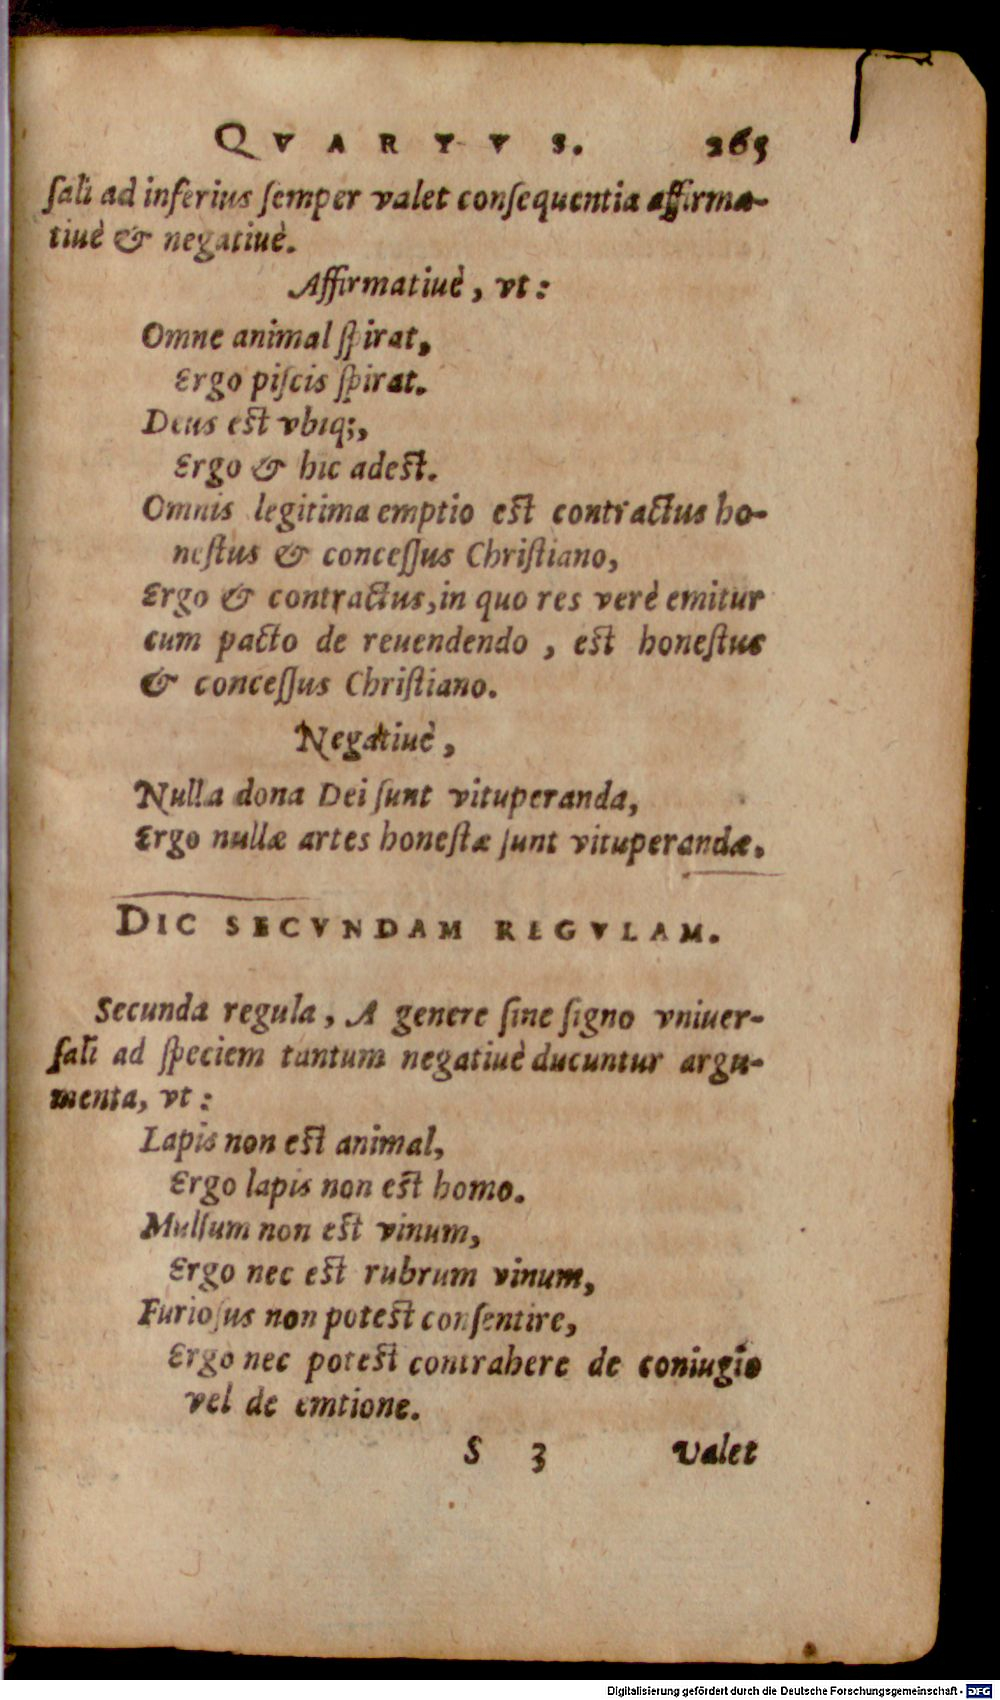 QVARTVS. 265
ſali ad inferius ſemper valet conſequentia affirma-
tiuè & negatiuè.
Affirmatiuè, vt:
Omne animal ſpirat,
Ergo piſcis ſpirat.
Deus est vbiq;,
Ergo & hic adest.
Omnis legitima emptio est contractus ho-
neſtus & conceſſus Chriſtiano,
Ergo & contractus, in quo res verè emitur
cum pacto de reuendendo, est honeſtus
& conceſſus Chriſtiano.
Negatiuè,
Nulla dona Dei ſunt vituperanda,
Ergo nullæ artes honeſtæ ſunt vituperandæ.
DIC SECVNDAM REGVLAM.
Secunda regula, A genere ſine ſigno vniuer-
ſali ad ſpeciem tantum negatiuè ducuntur argu-
menta, vt:
Lapis non est animal,
Ergo lapis non est homo.
Mulſum non est vinum,
Ergo nec est rubrum vinum,
Furioſus non potest conſentire,
Ergo nec potest contrahere de coniugio
vel de emtione.
S 3 valet
Digitalisierung gefördert durch die Deutsche Forschungsgemeinschaft - DFG